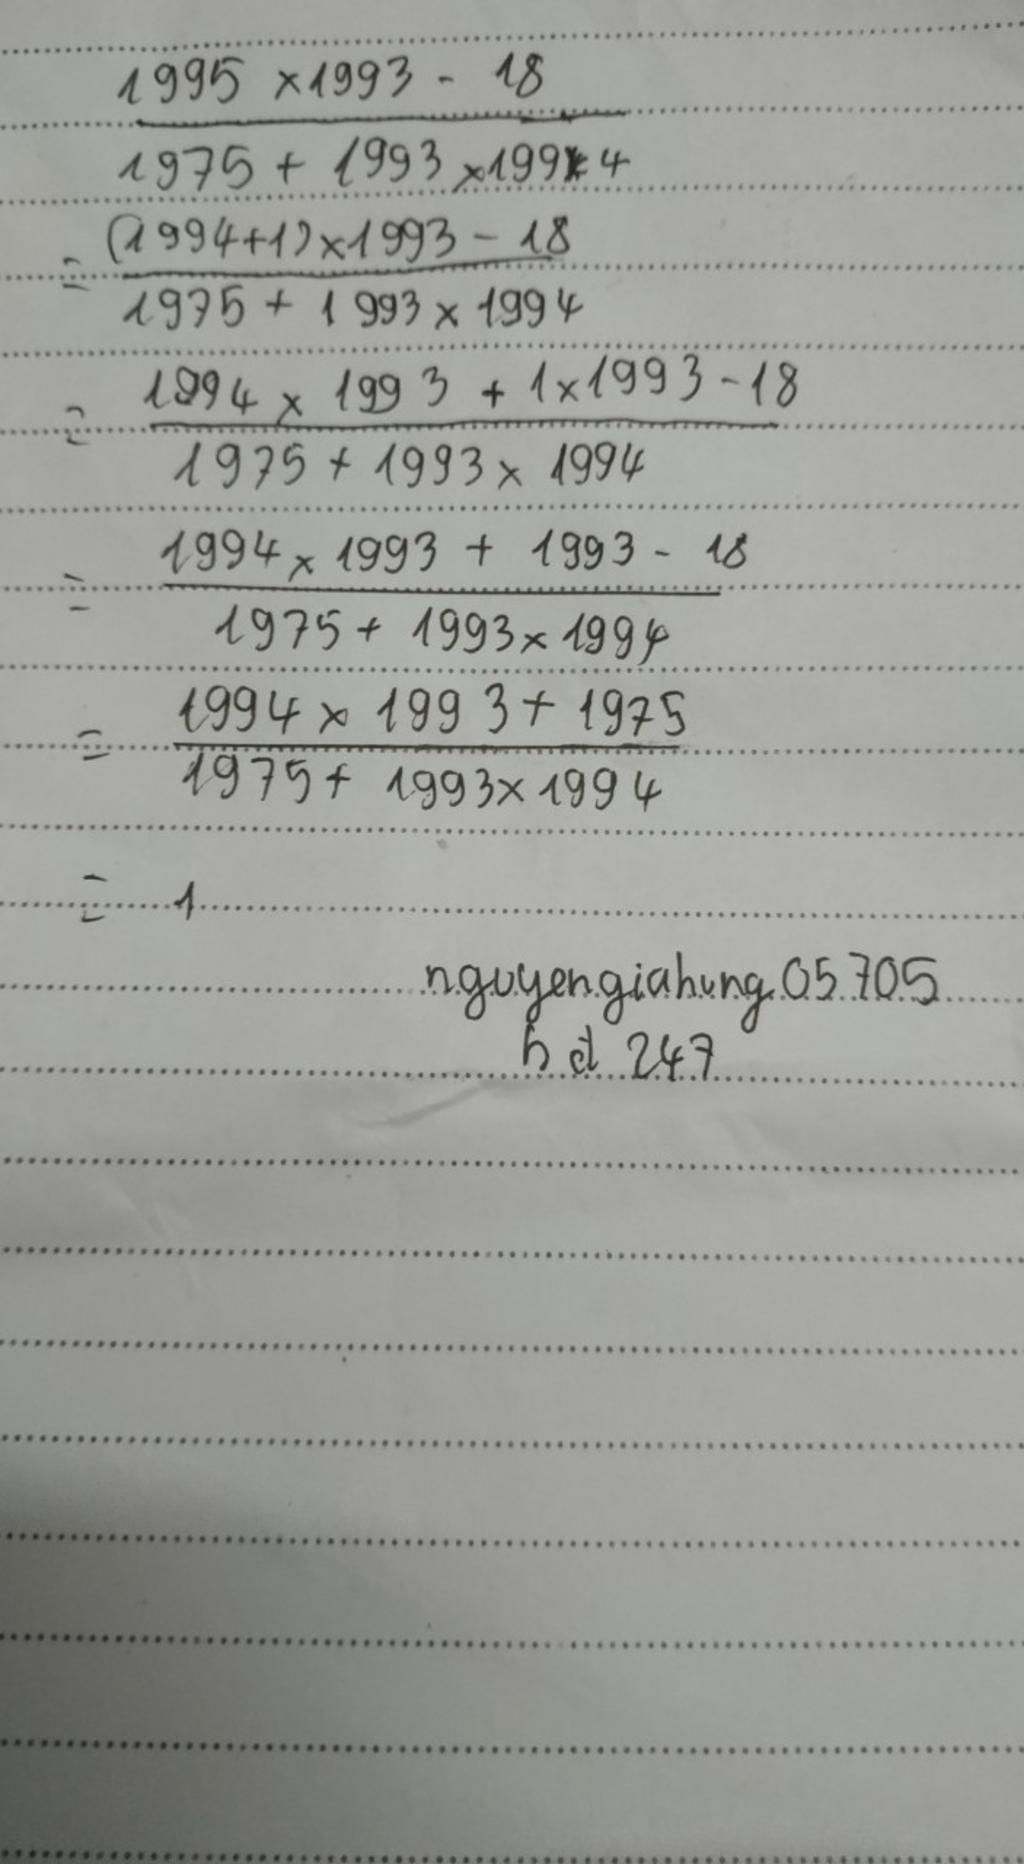 1995 × 1993 - 18
1975 + 1993 × 1994
= (1994+1) × 1993 - 18
1975 + 1993 × 1994
= 1994 × 1993 + 1 × 1993 - 18
1975 + 1993 × 1994
= 1994 × 1993 + 1993 - 18
1975 + 1993 × 1994
= 1994 × 1993 + 1975
1975 + 1993 × 1994
= 1
nguyengiahung05705
hd 247